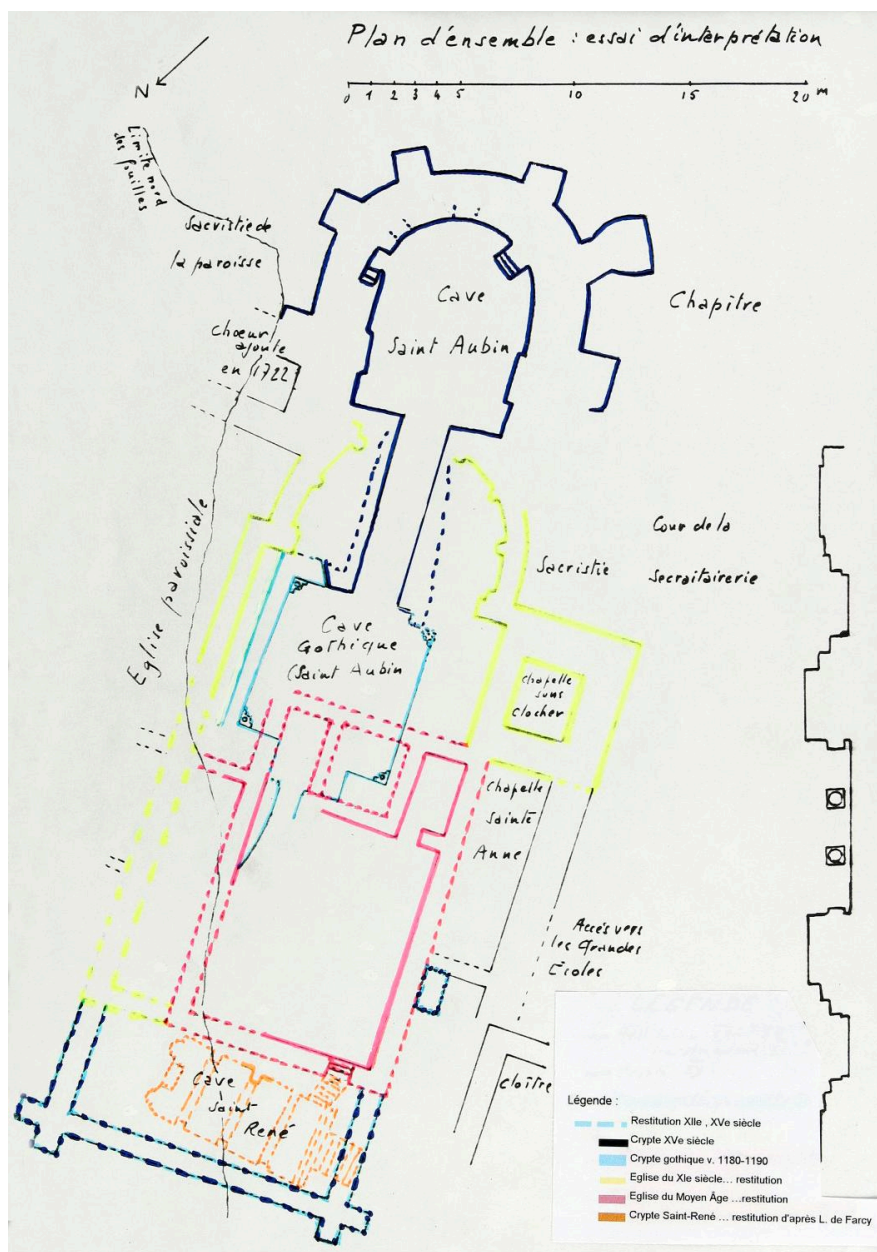 Plan d'ensemble : essai d'interprétation
N
0 1 2 3 4 5 10 15 20 m
Limite nord
des fouilles
Sacristie de
la paroisse
Cave
Saint Aubin
Chapître
Chœur
ajouté
en 1722
Eglise paroissiale
Sacristie
Cour de la
Secraitairerie
Cave
Gothique
(Saint Aubin
Chapelle
sous
Clocher
Chapelle
Sainte
Anne
Accès vers
les Grandes
Écoles
Cloître
Cave
Saint
René
Légende :
Restitution XIIe , XVe siècle
Crypte XVe siècle
Crypte gothique v. 1180-1190
Eglise du XIe siècle... restitution
Eglise du Moyen Âge ...restitution
Crypte Saint-René ... restitution d'après L. de Farcy